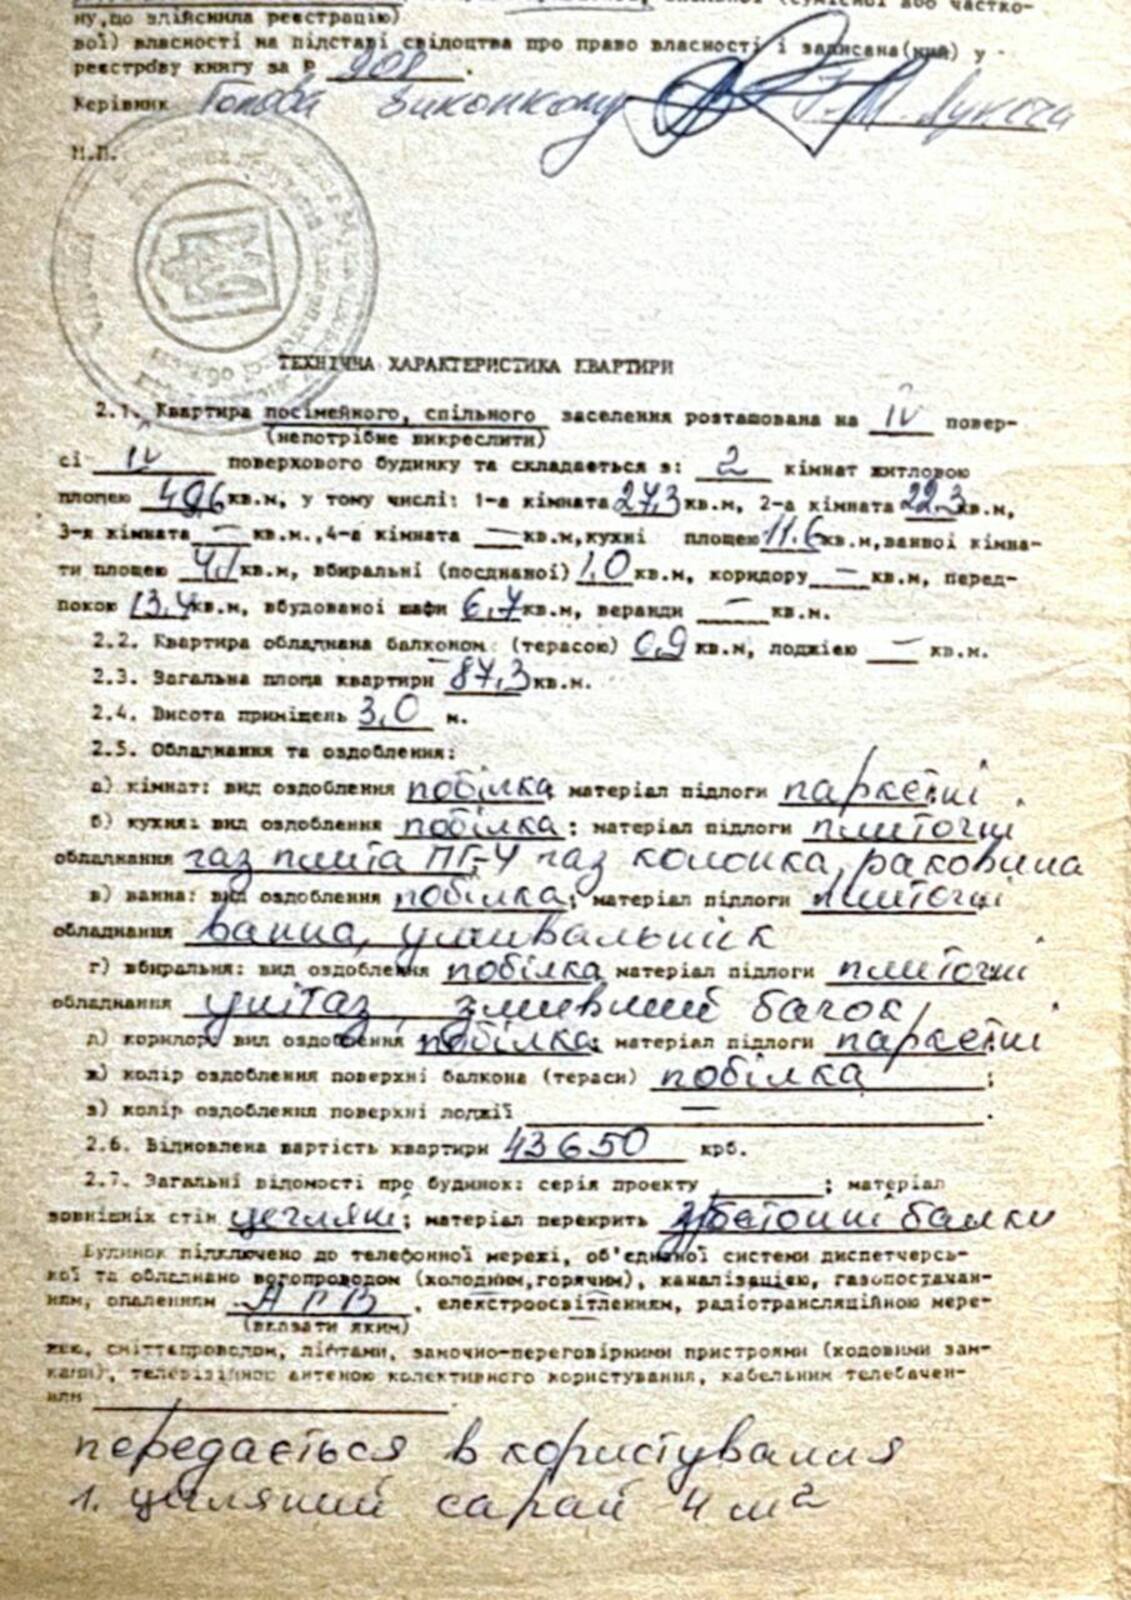 ну,що здійснила реєстрацію)
вої) власності на підставі свідоцтва про право власності і записана(ний) у
реєстрову книгу за р 908.
Керівник Голова виконкому
М.П.
ТЕХНІЧНА ХАРАКТЕРИСТИКА КВАРТИРИ
2.1. Квартира посімейного, спільного заселення розташована на IV повер-
(непотрібне викреслити)
сі IV поверхового будинку та складається з: 2 кімнат житловою
площею 49,6 кв.м, у тому числі: 1-а кімната 27,3 кв.м, 2-а кімната 22,3 кв.м,
3-я кімната — кв.м.,4-а кімната — кв.м,кухні площею 11,6 кв.м,ванної кімна-
ти площею 4,1 кв.м, вбиральні (поєднаної) 1,0 кв.м, коридору — кв.м, перед-
покою 13,4 кв.м, вбудованої шафи 6,7 кв.м, веранди — кв.м.
2.2. Квартира обладнана балконом (терасою) 0,9 кв.м, лоджією — кв.м.
2.3. Загальна площа квартири 87,3 кв.м.
2.4. Висота приміщень 3,0 м.
2.5. Обладнання та оздоблення:
а) кімнат: вид оздоблення побілка матеріал підлоги паркетні.
б) кухня: вид оздоблення побілка; матеріал підлоги плиточні
обладнання газ плита ПГ-4 газ колонка, раковина
в) ванна: вид оздоблення побілка; матеріал підлоги плиточні
обладнання ванна, умивальнік
г) вбиральня: вид оздоблення побілка матеріал підлоги плиточні
обладнання унітаз, змивний бачок
д) коридор: вид оздоблення побілка; матеріал підлоги паркетні
ж) колір оздоблення поверхні балкона (тераси) побілка;
з) колір оздоблення поверхні лоджії —.
2.6. Відновлена вартість квартири 43650 крб.
2.7. Загальні відомості про будинок: серія проекту ; матеріал
зовнішніх стін цегляні; матеріал перекрить з/бетонні балки
Будинок підключено до телефонної мережі, об'єднаної системи диспетчерсь-
кої та обладнано водопроводом (холодним,горячим), каналізацією, газопостачан-
ням, опаленням АГВ, електроосвітленням, радіотрансляційною мере-
(вказати яким)
жею, сміттєпроводом, ліфтами, замочно-переговірними пристроями (кодовими зам-
ками), телевізійною антеною колективного користування, кабельним телебачен-
ням
передається в користування
1. цегляний сарай 4 м²